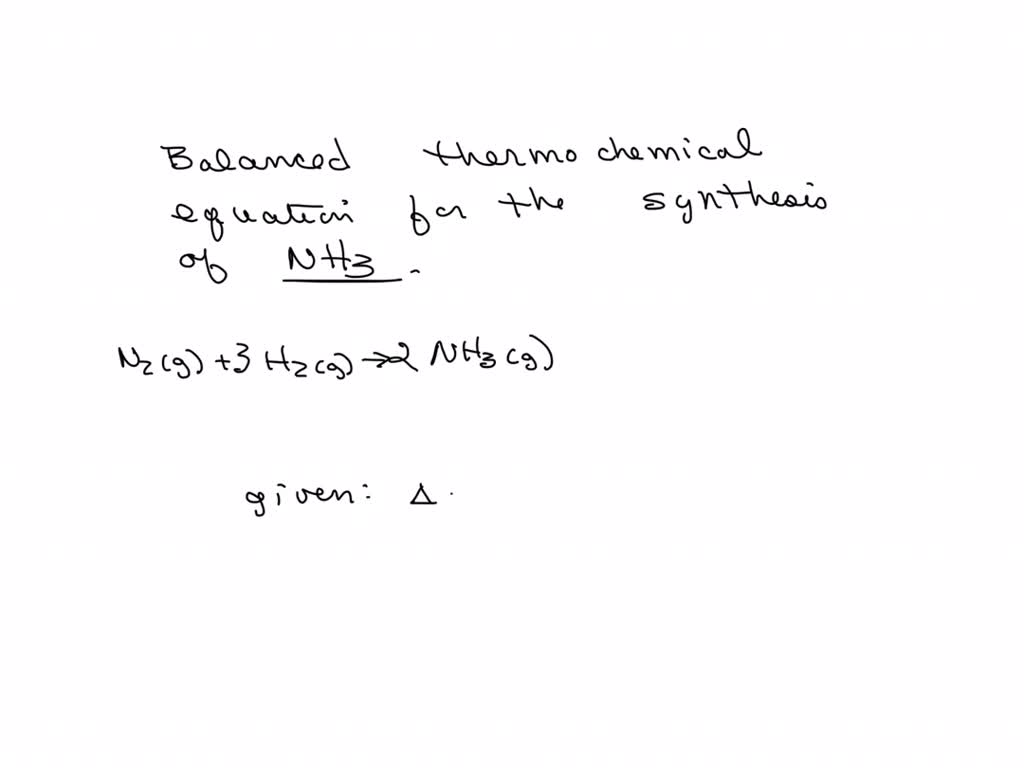 Balanced thermochemical
equation for the synthesis
of NH3.
N2(g) + 3 H2(g) → 2 NH3(g)
given: Δ